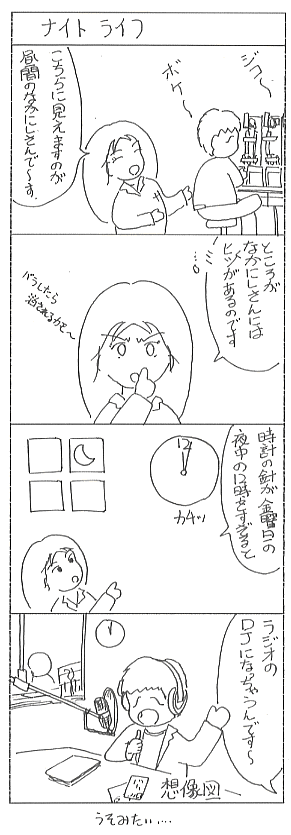 ナイト ライフ
ジクー
ボケー
こちらに見えますのが
昼間のなかにしさんで〜す。
ところが
なかにしさんには
ヒミツがあるのです
バラしたら
消されるかも〜
時計の針が金曜日の
夜中の12時をすぎると
12
カチッ
ラジオの
DJになっちゃうんです〜
想像図
うそみたい…